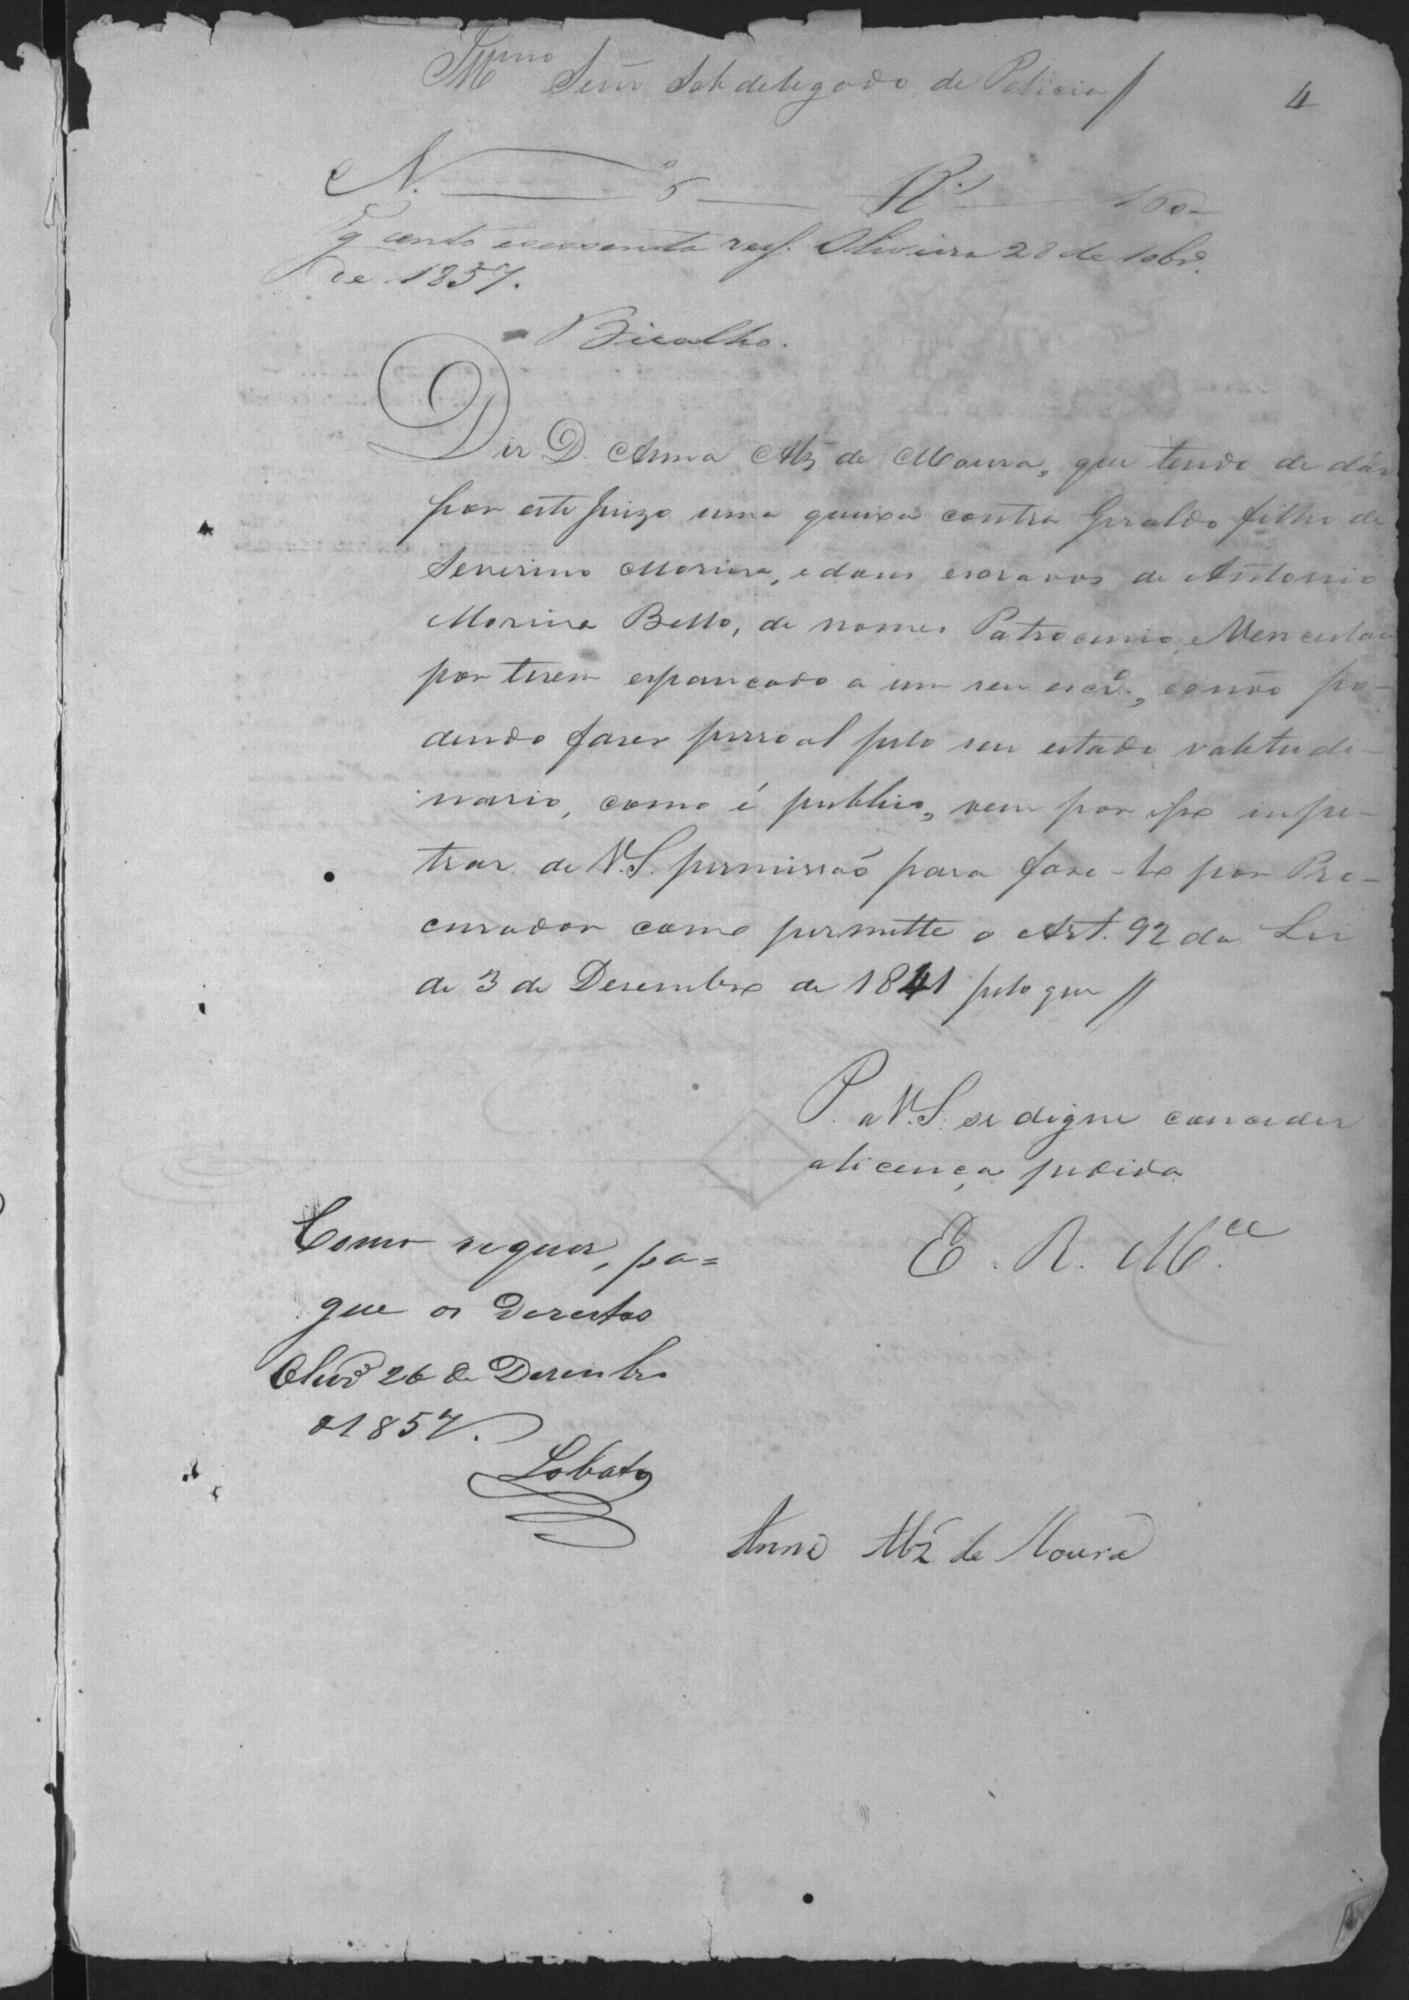 Illmo Senr Subdelegado de Policia
4
N. 5 Rs 160
Pg cento e sessenta reis. Oliveira 28 de 10bro.
de 1857.
Bicalho.
Diz D. Anna Alz de Moura, que tendo de dár
por este Juizo uma queixa contra Geraldo filho de
Severino Moreira, e dous escravos de Antonio
Moreira Bello, de nomes Patrocinio, e Venceslau
por terem espancado a um seu escro., e não po-
dendo fazer pessoal pelo seu estado valetudi-
nario, como é publico, vem por isso impe-
trar de V.S. permissão para faze-lo por Pro-
curador como permitte o Art. 92 da Lei
de 3 de Desembro de 1841 pelo que
P. a V.S. se digne conceder
a licença pedida
E. R. Mce
Como requer, pa=
gue os Dereitos
Olivra 26 de Desembro
d 1857.
Lobato
Anna Alz de Moura